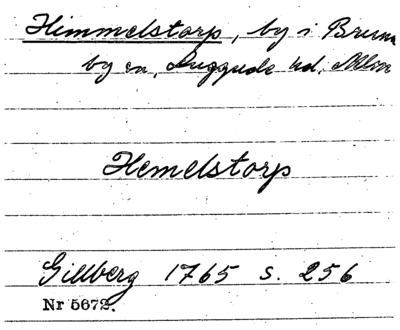 Himmelstorp, by i Brunn
by sn, Luggude hd, Mlm
Hemelstorp
Gillberg 1765 s. 256
Nr 5672.